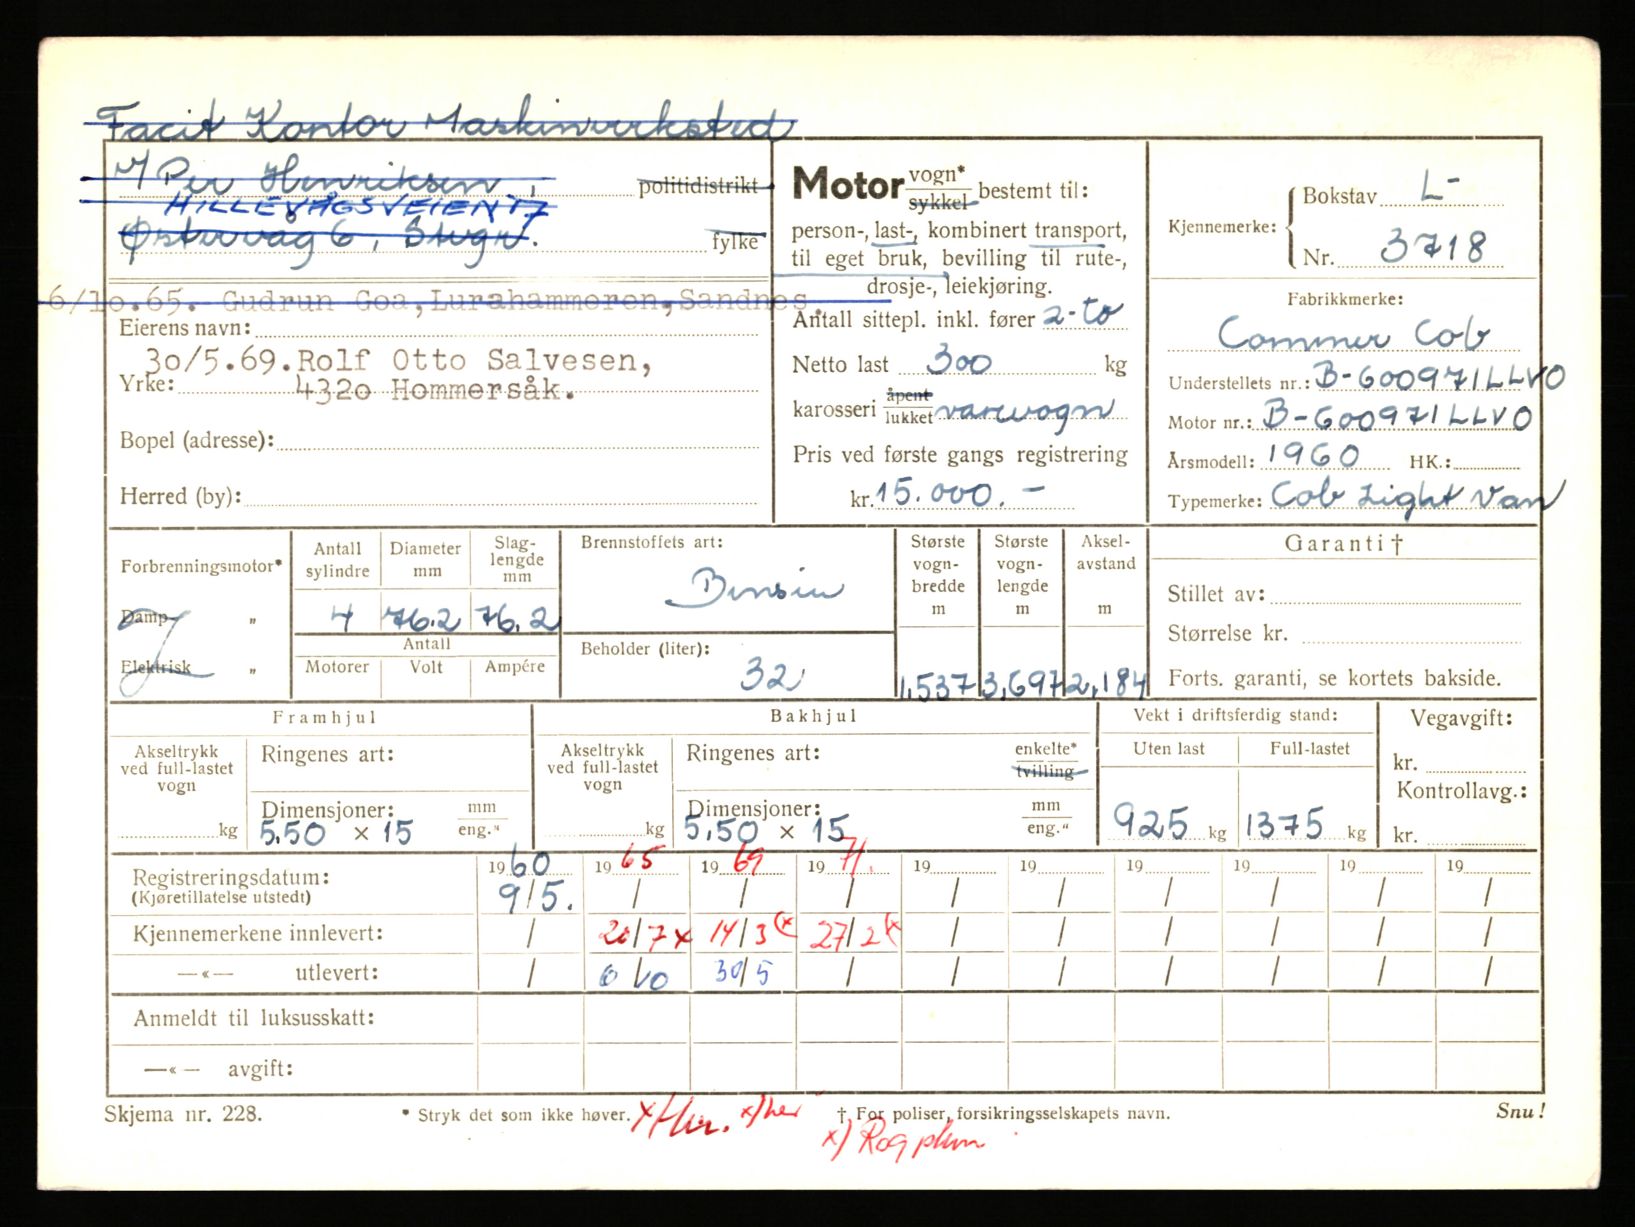 Facit Kontor Maskinverksted
v/ Per Henriksen, politidistrikt
HILLEVÅGSVEIEN 17
Østervåg 6, Stvgr. fylke
6/10.65. Gudrun Goa, Lurahammeren, Sandnes.
Eierens navn:
30/5.69. Rolf Otto Salvesen,
Yrke: 4320 Hommersåk.
Bopel (adresse):
Herred (by):
Motor vogn* sykkel bestemt til:
person-, last-, kombinert transport,
til eget bruk, bevilling til rute-,
drosje-, leiekjøring.
Antall sittepl. inkl. fører 2-to
Netto last 300 kg
karosseri åpent lukket varevogn
Pris ved første gangs registrering
kr. 15.000.-
Kjennemerke: Bokstav L-
Nr. 3718
Fabrikkmerke:
Commer Cob
Understellets nr.: B-600971LLVO
Motor nr.: B-600971LLVO
Årsmodell: 1960 HK.:
Typemerke: Cob Light Van
Forbrenningsmotor*
Damp- "
Elektrisk "
Antall sylindre Diameter mm Slaglengde mm
4 76.2 76.2
Antall
Motorer Volt Ampére
Brennstoffets art:
Bensin
Beholder (liter):
32
Største vognbredde m Største vognlengde m Akselavstand m
1,537 3,697 2,184
Garanti †
Stillet av:
Størrelse kr.
Forts. garanti, se kortets bakside.
Framhjul
Akseltrykk ved full-lastet vogn
kg
Ringenes art:
Dimensjoner: mm eng."
5.50 × 15
Bakhjul
Akseltrykk ved full-lastet vogn
kg
Ringenes art: enkelte* tvilling
Dimensjoner: mm eng."
5.50 × 15
Vekt i driftsferdig stand:
Uten last Full-lastet
925 kg 1375 kg
Vegavgift:
kr.
Kontrollavg.:
kr.
1960 1965 1969 1971. 19 19 19 19 19 19
Registreringsdatum: 9/5. / / / / / / / / /
(Kjøretillatelse utstedt)
Kjennemerkene innlevert: / 20/7 x 14/3 (x 27/2 (x / / / / / /
—«— utlevert: / 6/10 30/5 / / / / / / /
Anmeldt til luksusskatt:
—«— avgift:
Skjema nr. 228. * Stryk det som ikke høver. x) her † For poliser, forsikringsselskapets navn. Snu!
x) Rog